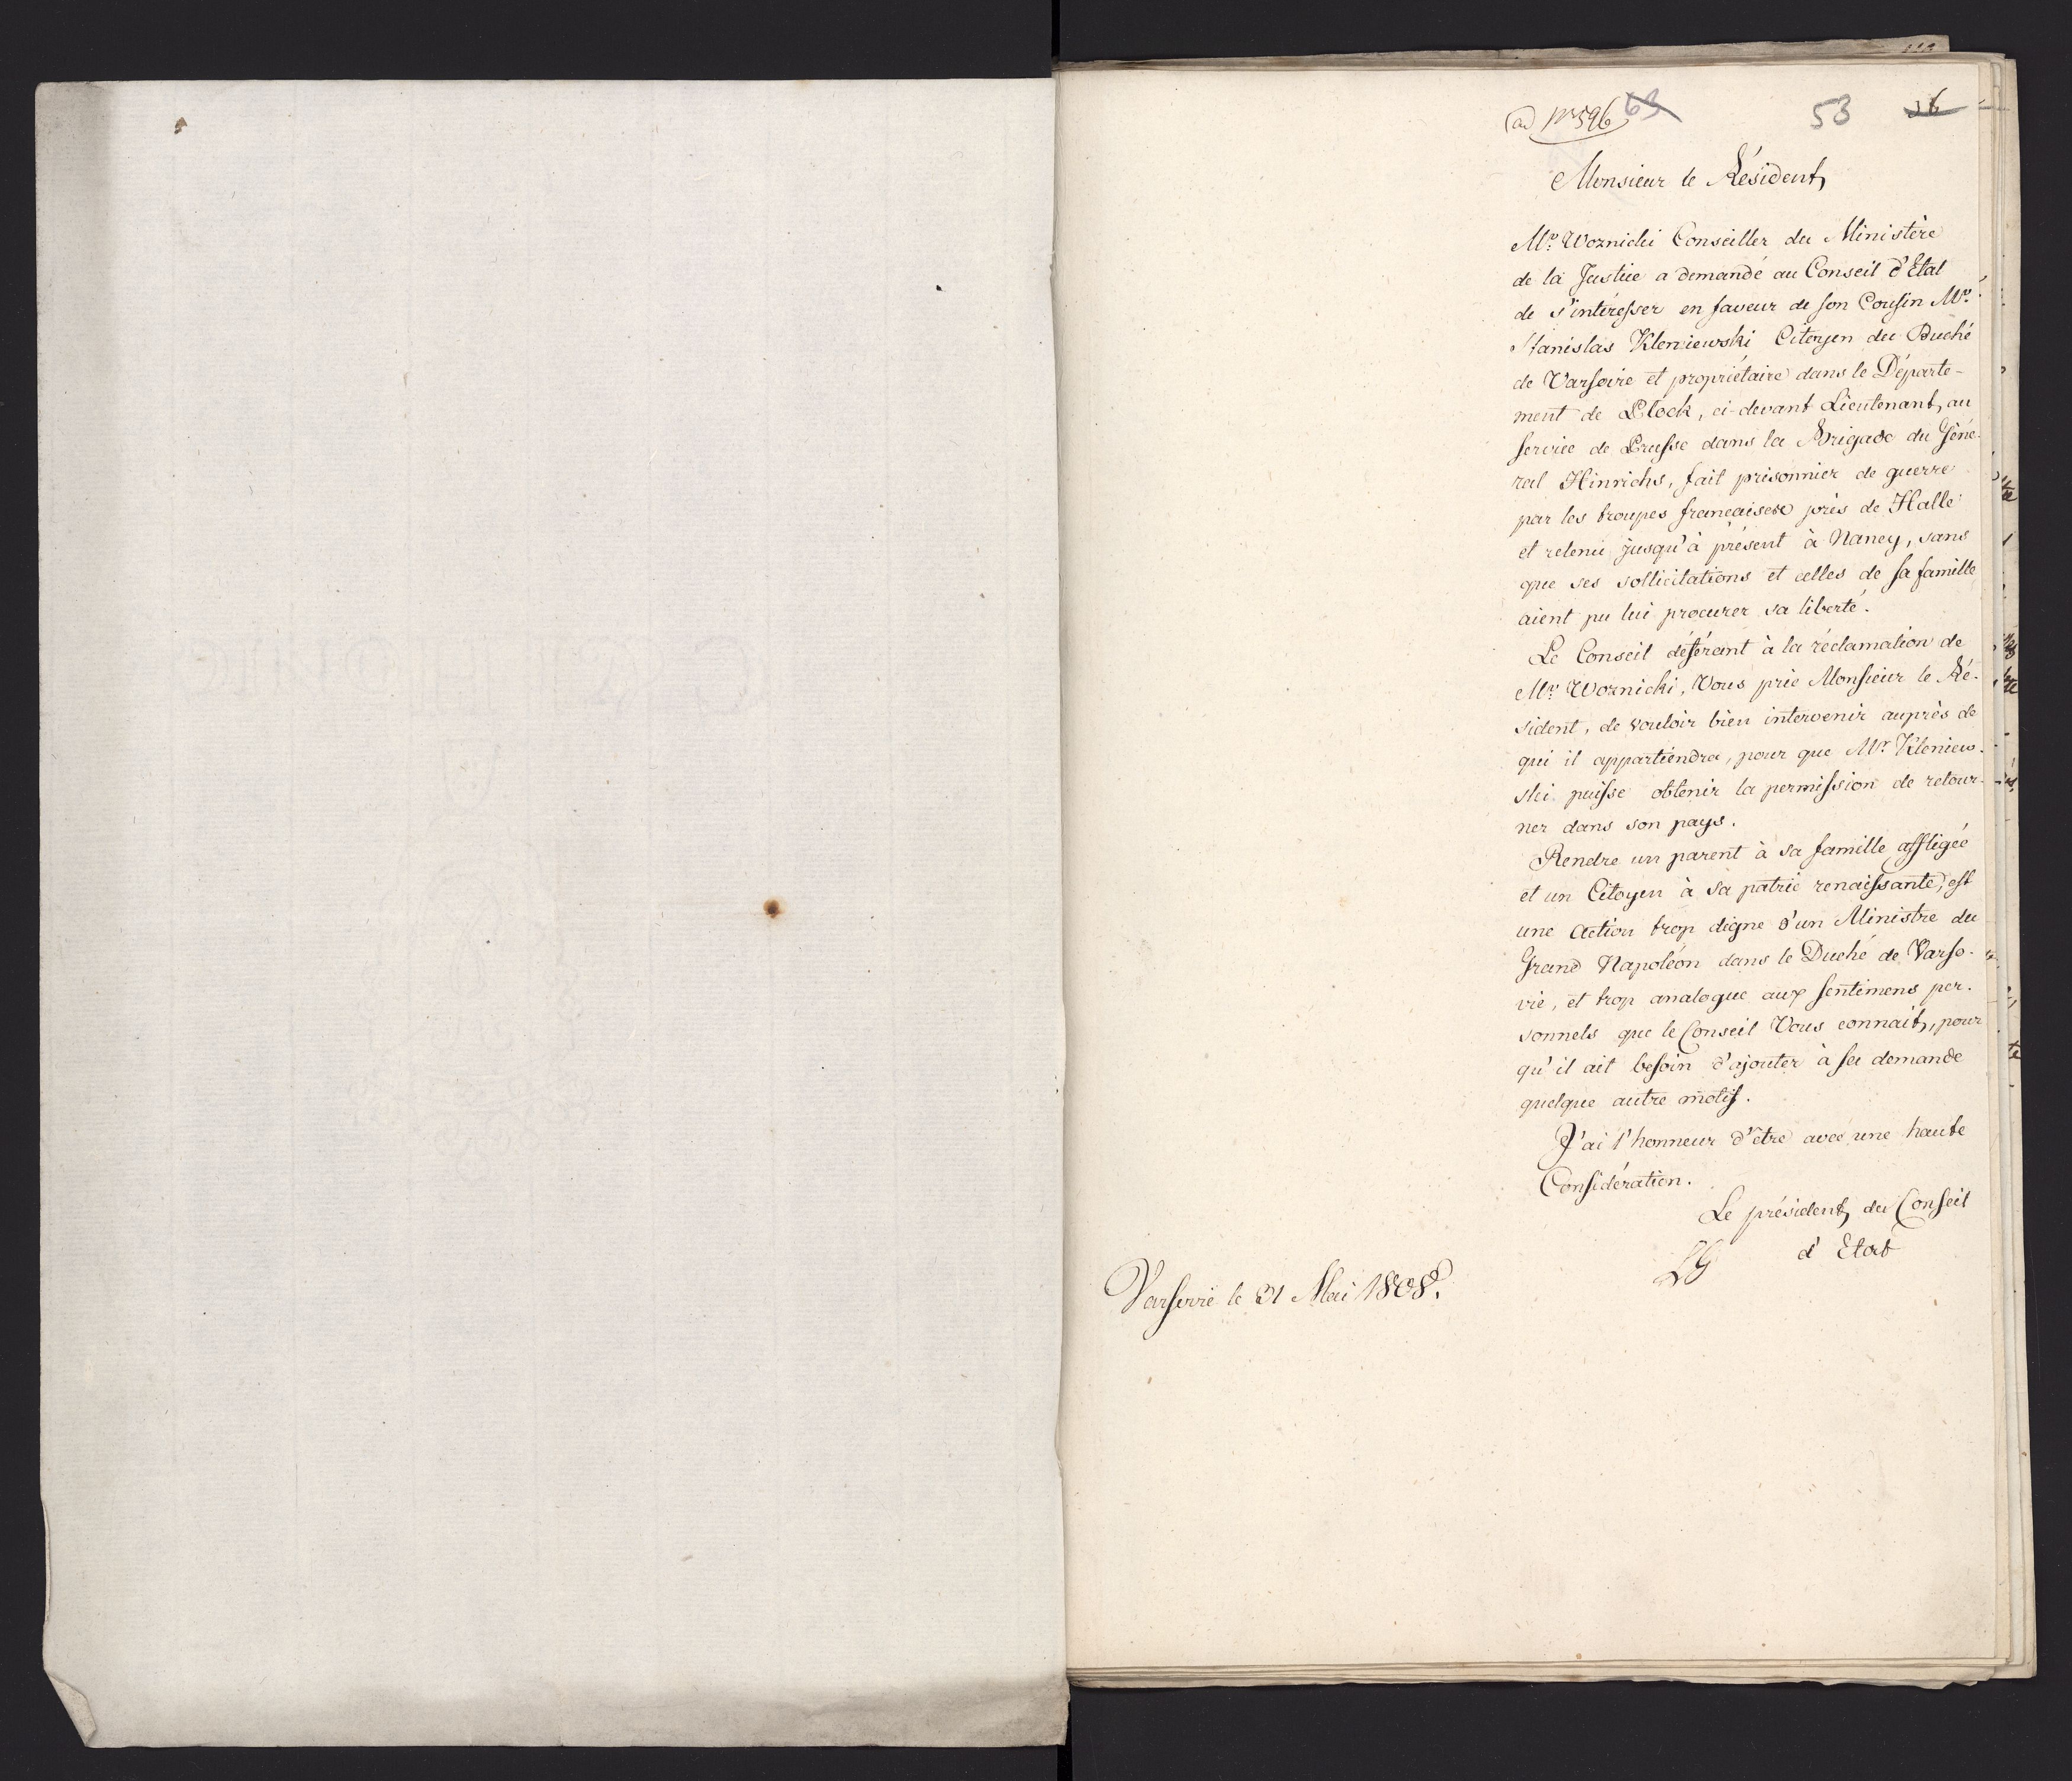 ad Nr 596 63
53 36
Monsieur le Résident,
Mr. Woznicki Conseiller du Ministère
de la Justice a demandé au Conseil d'Etat
de s'intéresser en faveur de son Cousin Mr.
Stanislas Kleniewski Citoyen du Duché
de Varsovie et propriétaire dans le Départe-
ment de Plock, ci-devant Lieutenant, au
service de Prusse dans la Brigade du Géné-
ral Hinrichs, fait prisonnier de guerre
par les troupes françaises près de Halle
et retenu jusqu'à présent à Nancy, sans
que ses sollicitations et celles de sa famille
aient pu lui procurer sa liberté.
Le Conseil déférant à la réclamation de
Mr. Woznicki, Vous prie Monsieur le Ré-
sident, de vouloir bien intervenir auprès de
qui il appartiendra, pour que Mr. Kleniew-
ski puisse obtenir la permission de retour-
ner dans son pays.
Rendre un parent à sa famille affligée
et un Citoyen à sa patrie renaissante, est
une action trop digne d'un Ministre du
Grand Napoléon dans le Duché de Varso-
vie, et trop analogue aux sentimens per-
sonnels que le Conseil Vous connait, pour
qu'il ait besoin d'ajouter à sa demande
quelque autre motif.
J'ai l'honneur d'être avec une haute
Considération.
Le président du Conseil
d'Etat
LG
Varsovie le 31 Mai 1808.